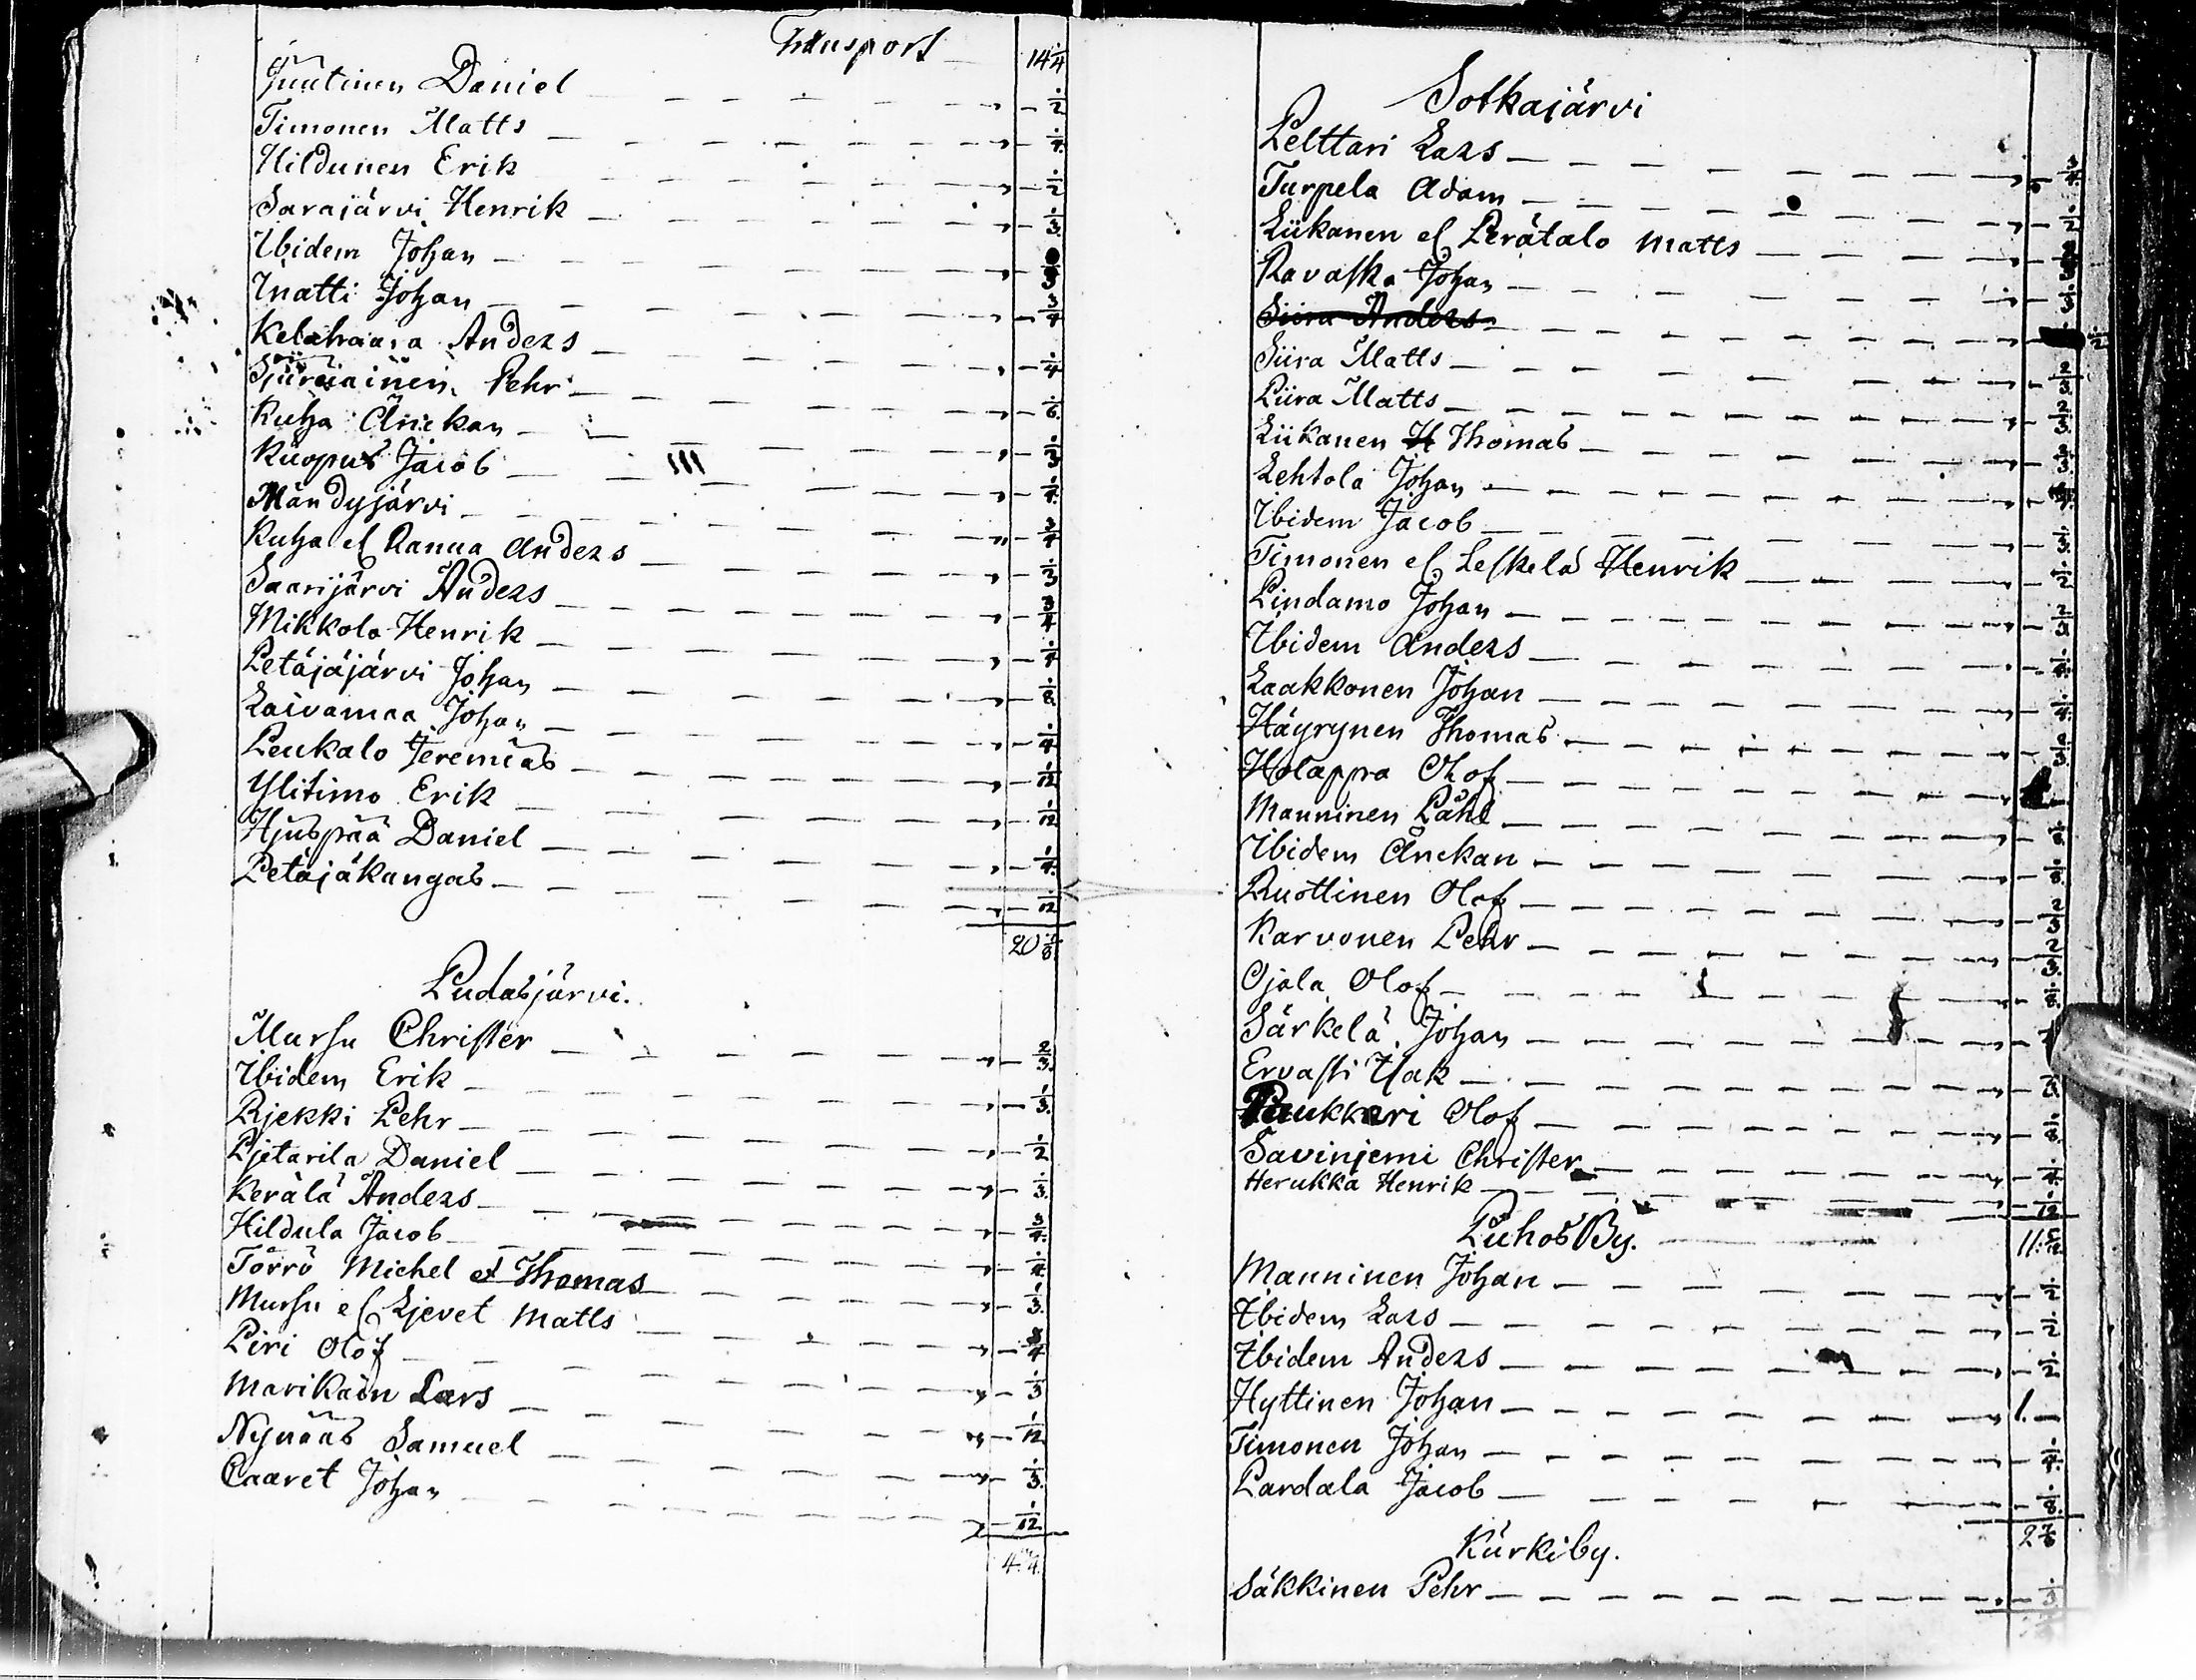 Transport 14 1/4
Juutinen Daniel - 1/2
Timonen Matts - 1/4
Hildunen Erik - 1/2
Sarajärvi Henrik - 1/3
Ibidem Johan
Inatti Johan - 3/4
Kelahaara Anders - 1/4
Pehr - 1/6
Kuha Änckan - 1/3
Kuopus Jacob - 1/4
Mändyjärvi - 3/4
Kuha el Ranua Anders - 1/3
Saarijärvi Anders - 3/4
Mikkola Henrik - 1/4
Petäjäjärvi Johan - 1/8
Laivamaa Johan - 1/4
Leukalo Jeremias - 1/12
Ylitimo Erik - 1/12
Hjuspää Daniel - 1/4
Petäjäkangas - 1/12
20 1/8
Pudasjärvi.
Mursu Christer - 2/3
Ibidem Erik - 1/3
Rjekki Pehr - 1/2
Pjetarila Daniel - 1/3
Kerälä Anders - 3/4
Hildula Jacob - 1/4
Törrö Michel et Thomas - 1/3
Mursu el Ljevet Matts - 3/4
Piri Olof - 1/3
Marikain Lars - 1/12
Nynääs Samuel - 1/3
Caaret Johan - 1/12
Sotkajärvi
Pelttari Lars - 3/4
Turpela Adam - 1/2
Liikanen el Perätalo Matts
Ravaska Johan - 1/3
Siira Anders 1/2
Siira Matts - 2/3
Piira Matts - 2/3
Liikanen H Thomas - 2/3
Lehtola Johan
Ibidem Jacob - 1/3
Timonen el Leskelä Henrik - 1/2
Pindamo Johan - 2/3
Ibidem Anders
Laakkonen Johan - 1/4
Häyrynen Thomas - 2/3
Holappa Olof
Manninen Påhl
Ibidem Änckan - 1/8
Ruottinen Olof - 2/3
Karvonen Pehr - 2/3
Ojala Olof - 1/8
Särkelä Johan
Ervasti Isak - 1/3
Paukkeri Olof - 1/8
Savinjemi Christer - 1/4
Herukka Henrik - 1/12
Puhos By. 11
Manninen Johan - 1/2
Ibidem Lars - 1/2
Ibidem Anders - 1/2
Hyttinen Johan 1. -
Timonen Johan - 1/4
Pardala Jacob - 1/8
2 7/8
Kurkiby.
Säkkinen Pehr - 1/3